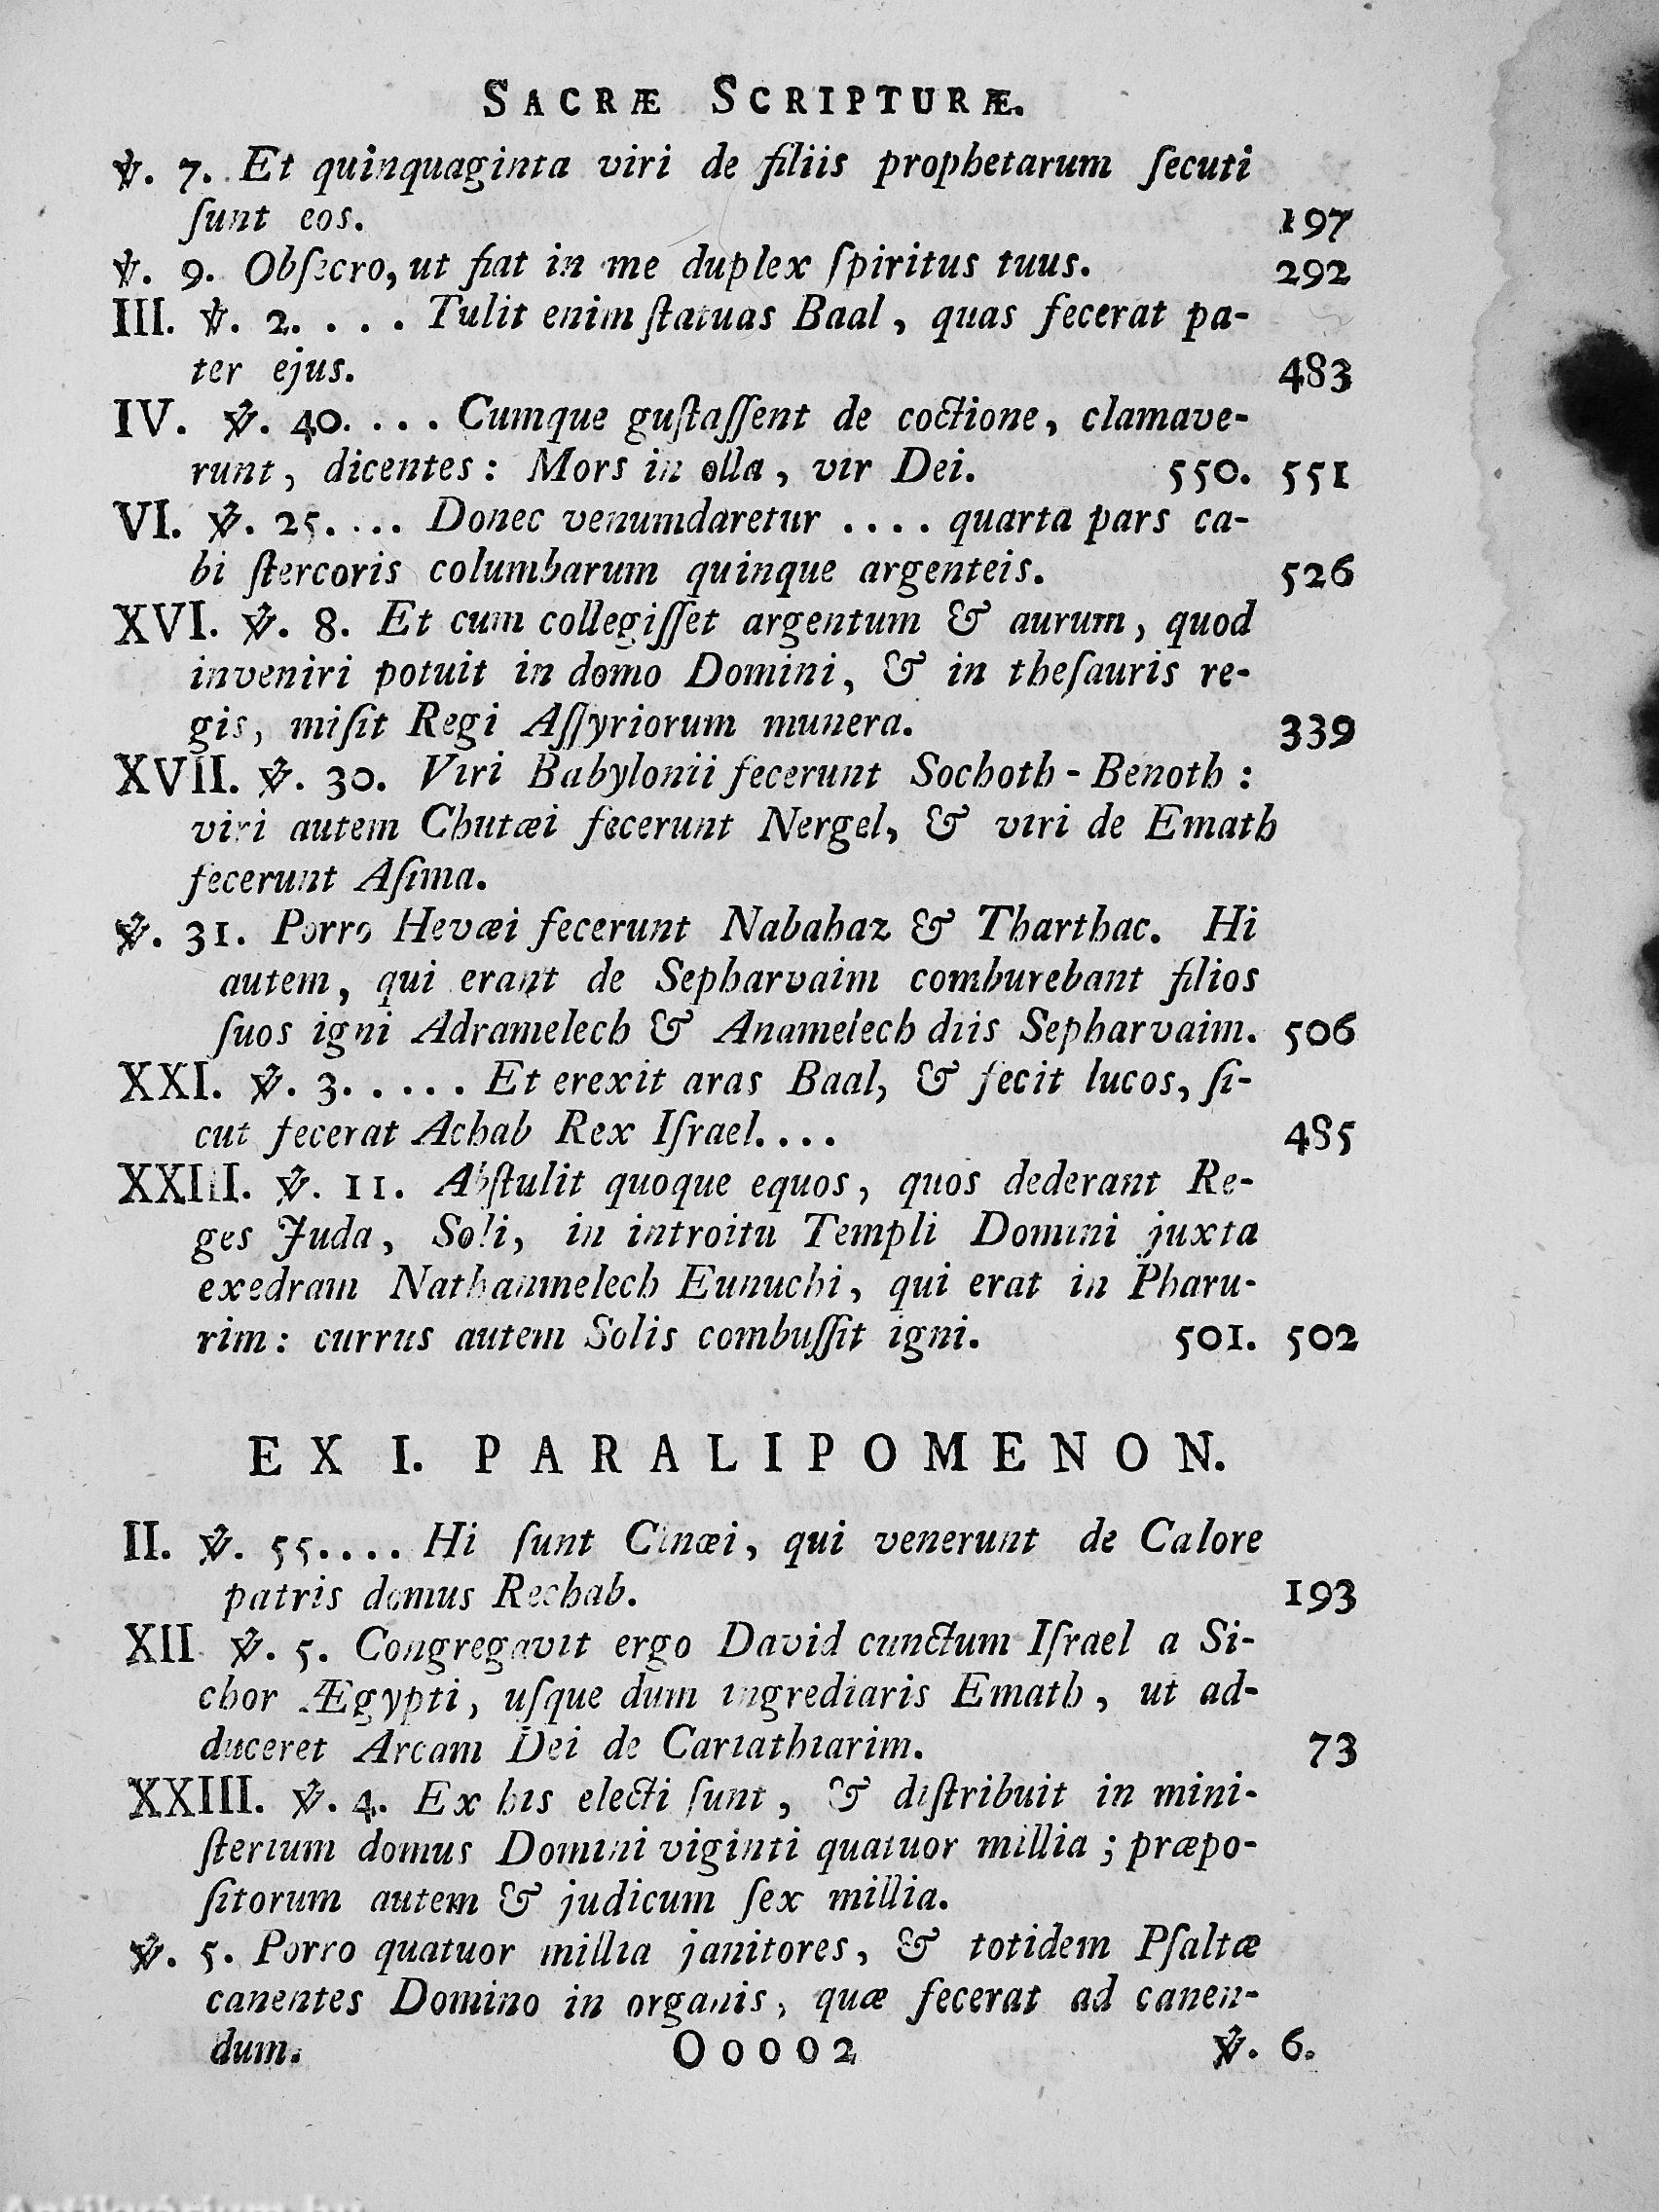 SACRÆ SCRIPTURÆ.
℣. 7. Et quinquaginta viri de filiis prophetarum ſecuti
ſunt eos. 197
℣. 9. Obſecro, ut fiat in me duplex ſpiritus tuus. 292
III. ℣. 2. . . . Tulit enim ſtatuas Baal, quas fecerat pa-
ter ejus. 483
IV. ℣. 40. . . . Cumque guſtaſſent de coctione, clamave-
runt, dicentes: Mors in olla, vir Dei. 550. 551
VI. ℣. 25. . . . Donec venumdaretur . . . . quarta pars ca-
bi ſtercoris columbarum quinque argenteis. 526
XVI. ℣. 8. Et cum collegiſſet argentum & aurum, quod
inveniri potuit in domo Domini, & in theſauris re-
gis, miſit Regi Aſſyriorum munera. 339
XVII. ℣. 30. Viri Babylonii fecerunt Sochoth-Benoth:
viri autem Chutæi fecerunt Nergel, & viri de Emath
fecerunt Aſima.
℣. 31. Porro Hevæi fecerunt Nabahaz & Tharthac. Hi
autem, qui erant de Sepharvaim comburebant filios
ſuos igni Adramelech & Anamelech diis Sepharvaim. 506
XXI. ℣. 3. . . . . Et erexit aras Baal, & fecit lucos, ſi-
cut fecerat Achab Rex Iſrael. . . . 485
XXIII. ℣. 11. Abſtulit quoque equos, quos dederant Re-
ges Juda, Soli, in introitu Templi Domini juxta
exedram Nathanmelech Eunuchi, qui erat in Pharu-
rim: currus autem Solis combuſſit igni. 501. 502
EX I. PARALIPOMENON.
II. ℣. 55. . . . Hi ſunt Cinæi, qui venerunt de Calore
patris domus Rechab. 193
XII ℣. 5. Congregavit ergo David cunctum Iſrael a Si-
chor Ægypti, uſque dum ingrediaris Emath, ut ad-
duceret Arcam Dei de Cariathiarim. 73
XXIII. ℣. 4. Ex his electi ſunt, & diſtribuit in mini-
ſterium domus Domini viginti quatuor millia; præpo-
ſitorum autem & judicum ſex millia.
℣. 5. Porro quatuor millia janitores, & totidem Pſaltæ
canentes Domino in organis, quæ fecerat ad canen-
dum. Oooo2 ℣. 6.